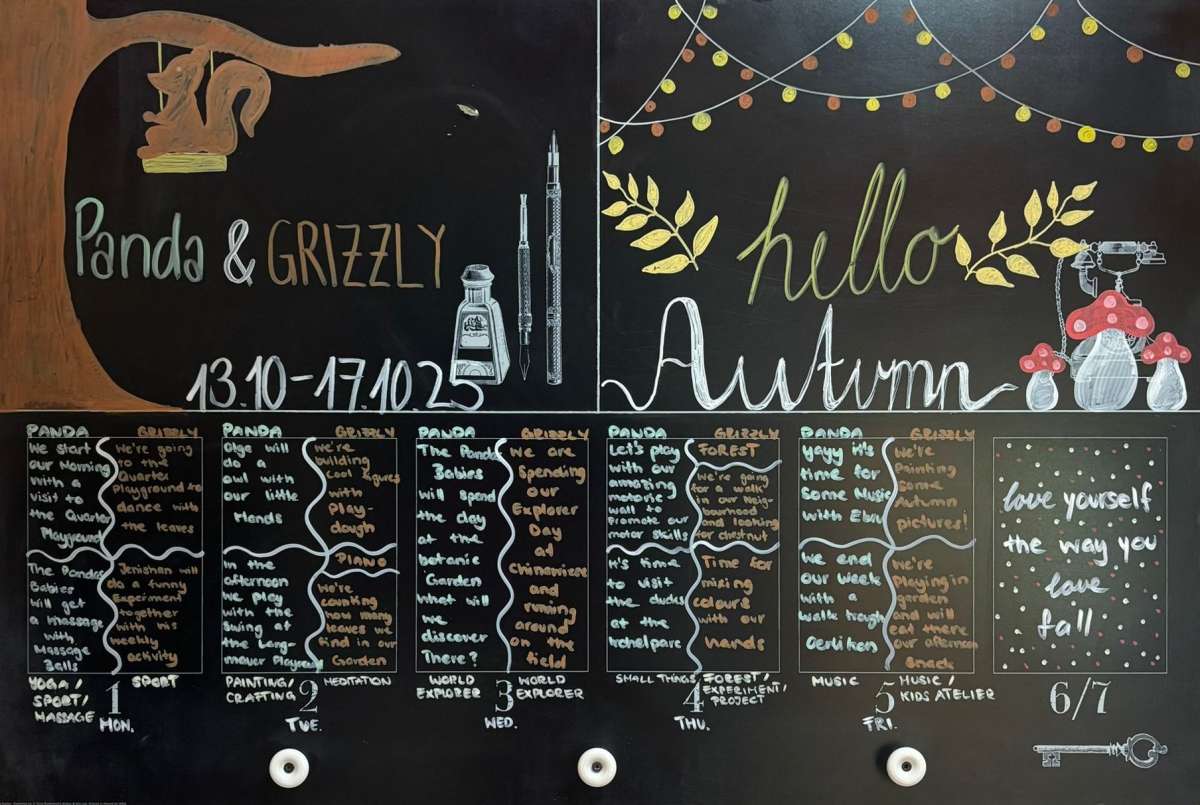 Panda & GRIZZLY
13.10-17.10.25
hello
Autumn
PANDA
We start
our Morning
with a
visit to
the Quarter
Playground
GRIZZLY
We're going
to the
Quarter
Playground to
dance with
the leaves
The Pandas
Babies
will get
a massage
with
Massage
Balls
Jenishan will
do a funny
Experiment
together
with his
weekly
activity
YOGA/
SPORT/
MASSAGE
SPORT
1
MON.
PANDA
Olga will
do a
owl with
our little
Hands
GRIZZLY
we're
building
cool figures
with
Play-
dough
In the
afternoon
we play
with the
swing at
the Lang-
mauer Playground
PIANO
We're
counting
how many
leaves we
find in our
Garden
PAINTING/
CRAFTING
MEDITATION
2
TUE.
PANDA
The Panda
Babies
will spend
the day
at the
botanic
Garden
what will
we
discover
There?
GRIZZLY
We are
Spending
our
Explorer
Day
at
Chinawiese
and
running
around
on the
field
WORLD
EXPLORER
WORLD
EXPLORER
3
WED.
PANDA
Let's play
with our
amazing
motoric
wall to
promote our
motor skills
GRIZZLY
FOREST
We're going
for a walk
in our Neig-
bourhood
and looking
for chestnut
It's time
to visit
the ducks
at the
Irchelpark
Time for
mixing
colours
with our
hands
SMALL THINGS
FOREST/
EXPERIMENT/
PROJECT
4
THU.
PANDA
yayy it's
time for
some Music
with Ebru
GRIZZLY
We're
Painting
some
autumn
pictures!
We end
our week
with a
walk trough
Oerlikon
We're
Playing in
garden
and will
eat there
our afternoon
snack
MUSIC
MUSIC/
KIDS ATELIER
5
FRI.
love yourself
the way you
love
fall
6/7